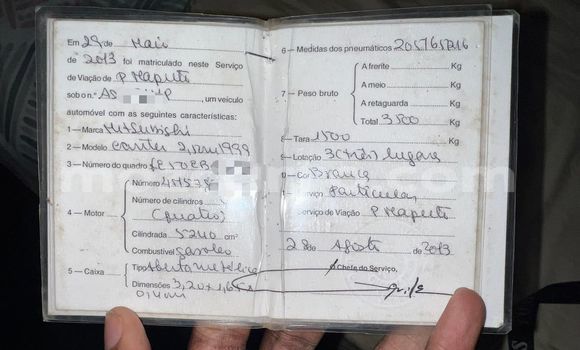 Em 29 de Maio
de 2013 foi matriculado neste Serviço
de Viação de P Maputo
sob o n.º AS P, um veículo
automóvel com as seguintes características:
1 — Marca Mitsubishi
2 — Modelo Canter 1999
3 — Número do quadro FE507EB
4 — Motor
Número 4M51
Número de cilindros 4
(quatro)
Cilindrada 5240 cm³
Combustível gasoleo
5 — Caixa
Tipo Aberta Metálica
Dimensões 3,20x1,6
0,40m
6 — Medidas dos pneumáticos 205/65R16
7 — Peso bruto
A frente Kg
A meio Kg
A retaguarda Kg
Total 3500 Kg
8 — Tara 1500 Kg
9 — Lotação 3 (três) lugares
10 — Cor Branca
Serviço Particular
Serviço de Viação P Maputo
28 de Agosto de 2013
O Chefe do Serviço,